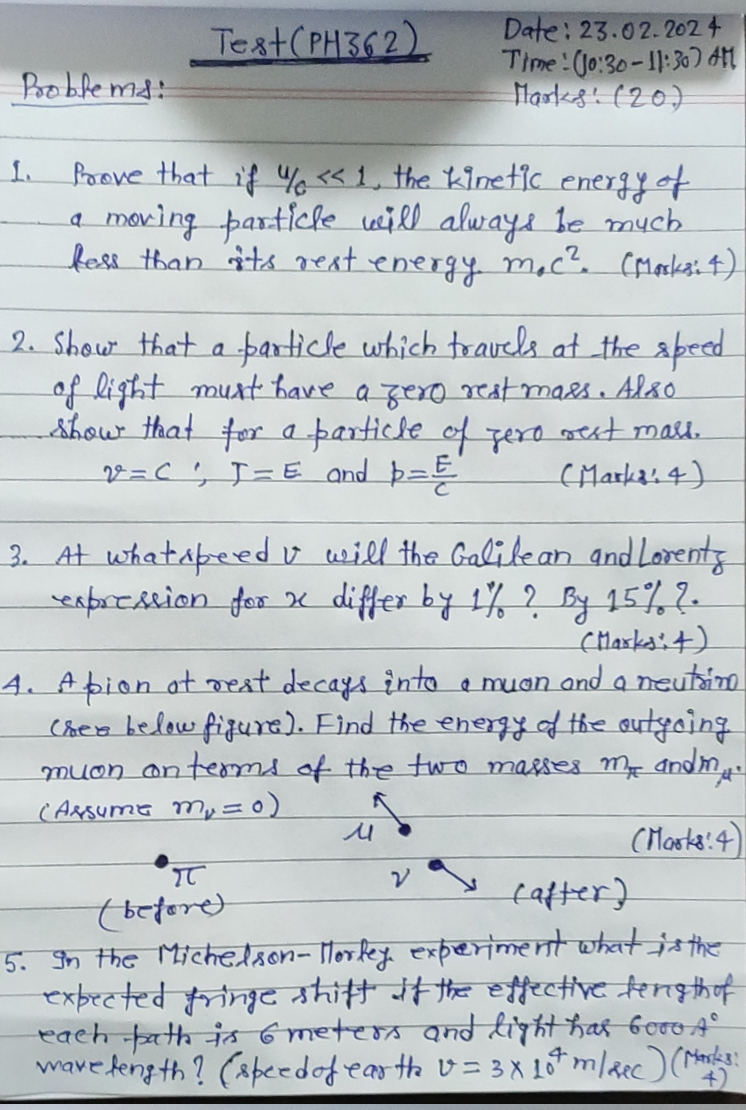 Test (PH362)
Date: 23.02.2024
Time: (10:30-11:30) AM
Problems:
Marks: (20)
1. Prove that if u/c << 1, the kinetic energy of
a moving particle will always be much
less than its rest energy m₀c². (Marks: 4)
2. Show that a particle which travels at the speed
of light must have a zero rest mass. Also
show that for a particle of zero rest mass.
v = c ; T = E and p = E/c (Marks: 4)
3. At what speed v will the Galilean and Lorentz
expression for x differ by 1% ? By 15% ?.
(Marks: 4)
4. A pion at rest decays into a muon and a neutrino
(see below figure). Find the energy of the outgoing
muon on terms of the two masses mπ and mμ.
(Assume mν = 0)
μ
(Marks: 4)
π
ν
(after)
(before)
5. In the Michelson-Morley experiment what is the
expected fringe shift if the effective length of
each path is 6 meters and light has 6000 A°
wavelength? (speed of earth v = 3 x 10⁴ m/sec) (Marks:
4)